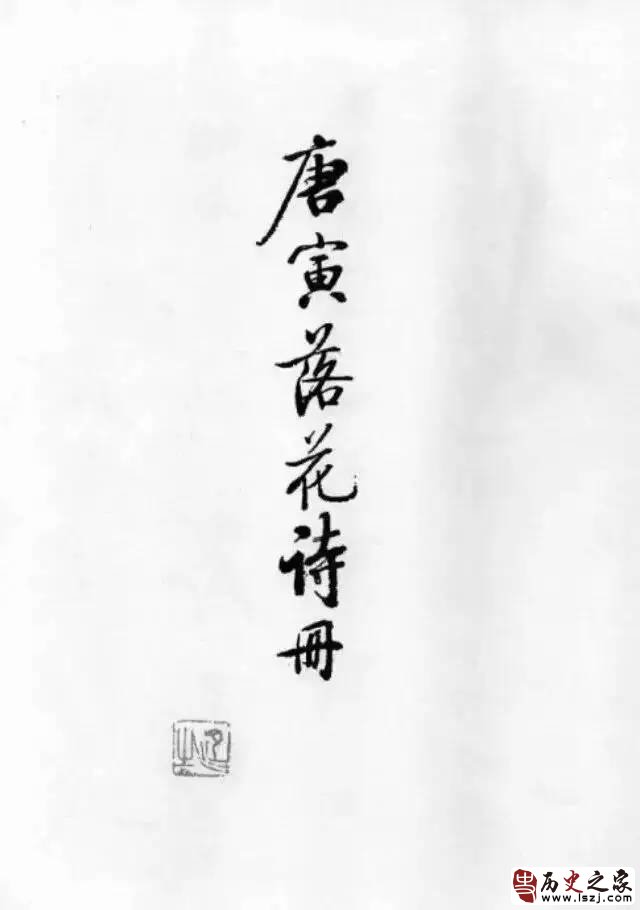 唐寅落花诗册
历史之家
www.lszj.com